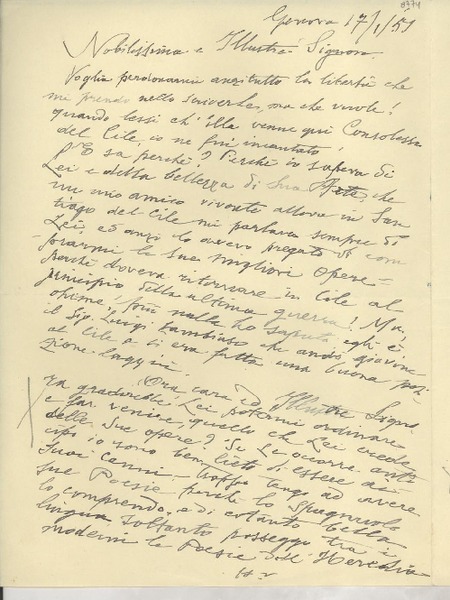 8974
Genova 17/1/51
Nobilissima e Illustre Signora.
Voglia perdonarmi anzitutto la libertà che
mi prendo nello scriverle, ma che vuole!
quando lessi ch'Ella venne qui Consolessa
del Cile, io ne fui incantato!
sa perchè? Perchè io sapevo di
Lei e della bellezza di Sua Arte, che
un mio amico vivente allora in San
tiago del Cile mi parlava sempre di
Lei, ed anzi lo avevo pregato di com
perarmi le Sue migliori Opere
perchè doveva ritornare in Cile al
principio della ultima guerra! Ma,
ohimè! più nulla ho saputo, egli è
il Sig. Luigi Gambiaso che andò giovine
al Cile e si era fatta una buona posi
zione laggiù.
Ora cara ed Illustre Signo
ra gradirebbe Lei potermi ordinare
e far venire, quello che Lei crede
delle Sue opere? Se Le occorre anti
cipo io sono ben lieto di essere ai
Suoi cenni, troppo tengo ad avere
Sue Poesie perchè lo Spagnuolo
lo comprendo, e di cotanto bella
lingua soltanto posseggo tra i
moderni le Poesie dell'Heredia